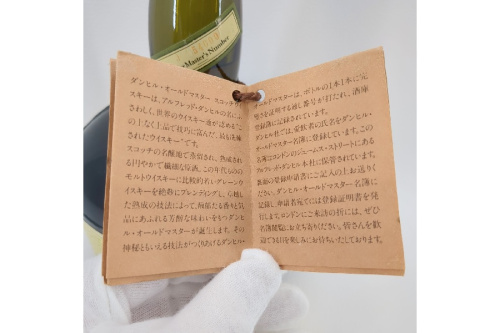 Master's Number
ダンヒル・オールドマスター スコッチウ
ィスキーは、アルフレッド・ダンヒルの名にふ
さわしく、世界のウイスキー通が認める"こ
の上なく上品で技巧に富んだ、最も洗練
されたウイスキー"です。
スコッチの名醸地で蒸留され、熟成され
る円やかで繊細な原酒。この年代もの
モルトウイスキーに比較的若いグレーンウ
イスキーを絶妙にブレンディングし、卓越し
た熟成の技法によって、馥郁たる香りと気
品にあふれる芳醇な味わいをもつダンヒ
ル・オールドマスターが誕生します。その
神秘ともいえる技法がつくりあげるダンヒル・
オールドマスターは、ボトルの1本1本に完
璧さを証明する通し番号が打だれ、酒庫
登録簿に記録されています。
ダンヒル社では、愛飲者の氏名をダンヒル・
オールドマスター名簿に登録しています。この
名簿はロンドンのジェームス・ストリートにある
アルフレッド・ダンヒル本社に保管されています。
巻末の登録申請書にご記入の上お送りく
ださい。ダンヒル・オールドマスター名簿に
記録し、申請者宛てには登録証明書を発
行します。ロンドンにご来訪の折には、ぜひ
名簿閲覧にお立ち寄りください。皆さんを歓
迎できる日を楽しみにお待ちいたしております。